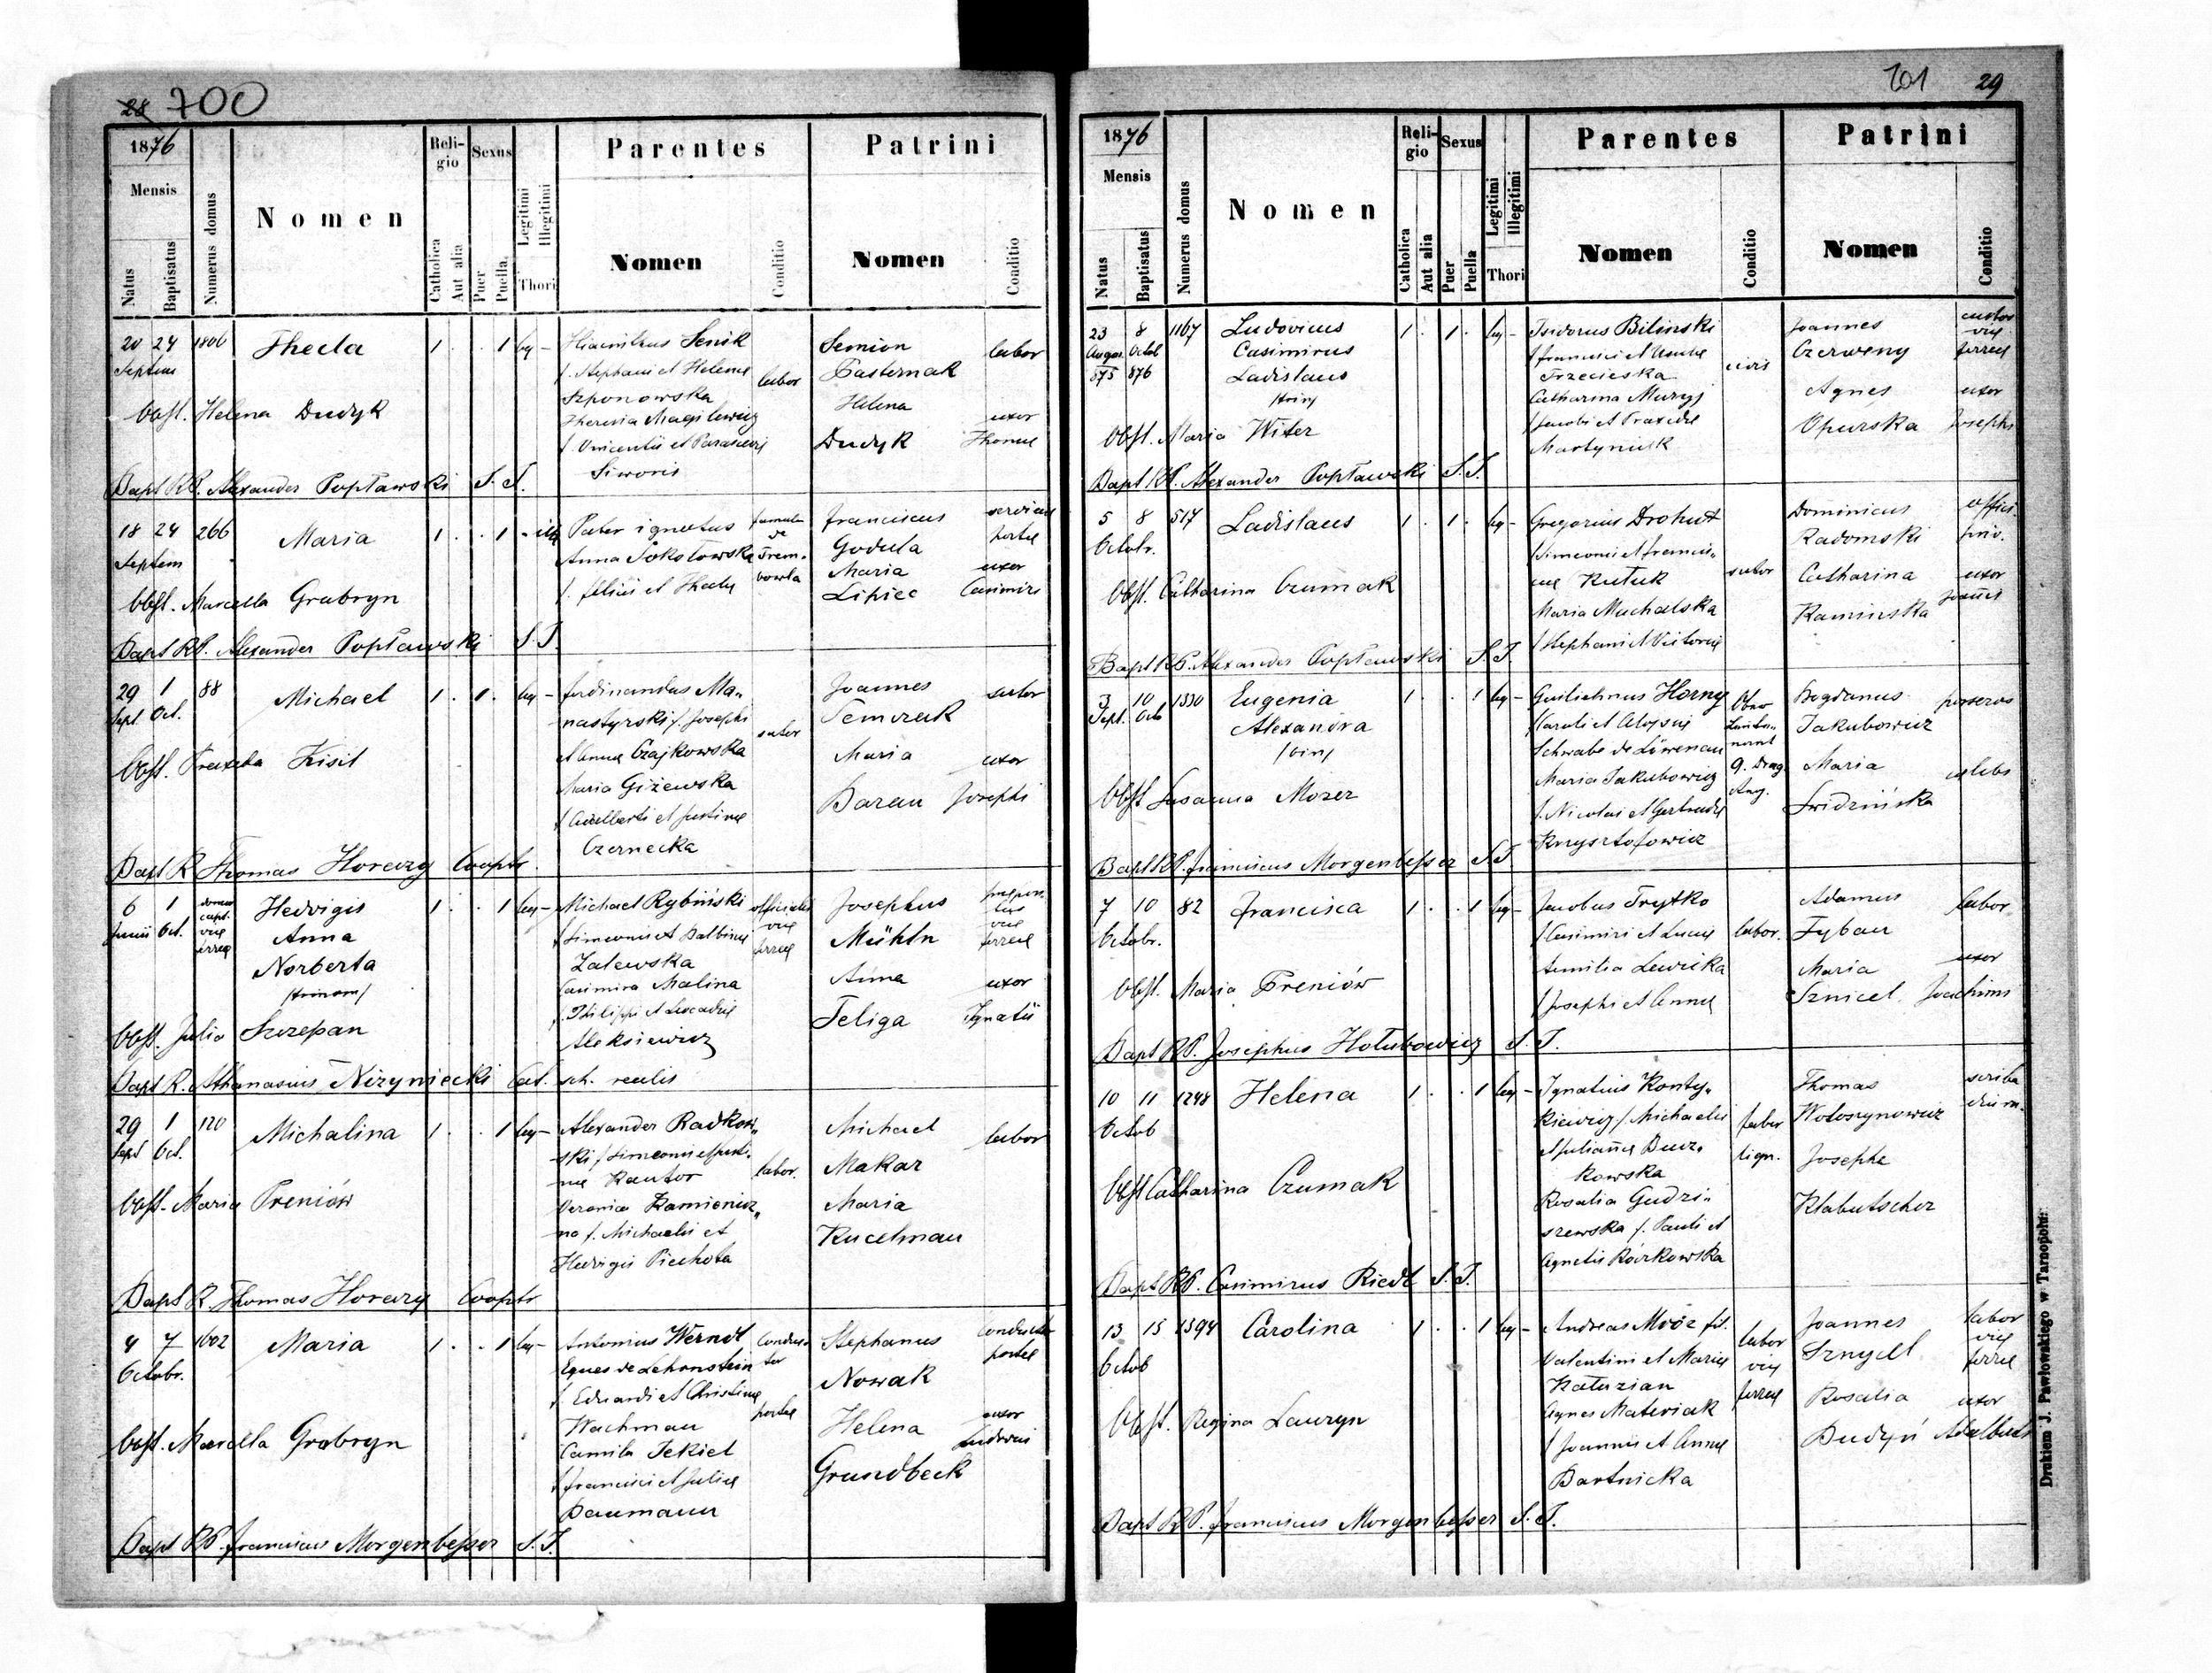 28 700
1876
Mensis
Natus
Baptisatus
Numerus domus
Nomen
Religio
Catholica
Aut alia
Sexus
Puer
Puella
Legitimi
Illegitimi
Thori
Parentes
Nomen
Conditio
Patrini
Nomen
Conditio
20 24 1806 Thecla 1 . . 1 leg -
Septem
Senik
f. Stephani et Helenae
Szponowska
labor
Theresia
f. Vincentii et
Siworis
Semion labor
Pasternak
Helena uxor
Dudyk Thomae
Obst. Helena Dudyk
Bapt RP. Alexander Popławski S. J.
18 24 266 Maria 1 . . 1 - illg
Septem
Pater ignotus famula
Anna Sokołowska de Trem-
f. et Theclae bowla
Franciscus serviens
Godula portae
Maria uxor
Lipiec Casimiri
Obst. Marcella Grabryn
Bapt RP. Alexander Popławski S. J.
29 1 88 Michael 1 . 1 . leg -
Sept. Oct.
Ferdinandus Ma-
nastyrski f. Josephi
et Annae Czajkowska
sutor
Maria Giżewska
f. Adalberti et Justinae
Czernecka
Joannes sutor
Temczak
Maria uxor
Baran Josephi
Obst. Kisil
Bapt R Thomas Horeczy Cooptr.
6 1 Hedvigis 1 . . 1 leg -
Junii Oct. Anna
Norberta
/trinom/
Michael Rybiński officialis
f. Simeonis et Balbinae viae
Zalewska ferreae
Casimira Malina
f. Philippi et Leocadiae
Aleksiewicz
Josephus
Mühln viae ferreae
Anna uxor
Feliga Ignatii
Obst. Julia Szczepan
Bapt R. Athanasius Nizyniecki Cat. sch. realis
29 1 120 Michalina 1 . . 1 leg -
Sept Oct.
Alexander Radkow-
ski f. Simeonis et Justi-
nae Kantor labor.
Veronica Kamienicz-
na f. Michaelis et
Hedvigis Piechota
Michael labor
Makar
Maria
Kucelman
Obst. Maria Preniów
Bapt R. Thomas Horeczy Cooptr
4 7 1602 Maria 1 . . 1 leg -
Octobr.
Antonius Werndl Conduc-
Eques de Lehenstein tor
f. Eduardi et Christinae portae
Wachman
Camila Jekiel
f. Francisci et Juliae
Baumann
Stephanus Conductor
Nowak portae
Helena uxor
Grundbeck Ludovici
Obst. Marcella Grabryn
Bapt RP. Franciscus Morgenbesser S. J.
701 29
1876
Mensis
Natus
Baptisatus
Numerus domus
Nomen
Religio
Catholica
Aut alia
Sexus
Puer
Puella
Legitimi
Illegitimi
Thori
Parentes
Nomen
Conditio
Patrini
Nomen
Conditio
23 8 1167 Ludovicus 1 . 1 . leg -
August Octob Casimirus
875 876 Ladislaus
/trin/
Isidorus Bilinski
f. Francisci et
Trzecieska civis
Catharina
f. Jacobi et Praxedae
Martyniuk
Joannes custos
Czerweny viae ferreae
Agnes uxor
Opurska Josephi
Obst. Maria Witer
Bapt RP. Alexander Popławski S. J.
5 8 517 Ladislaus 1 . 1 . leg -
Octobr.
Gregorius Drohut
f. Simeonis et Francis-
cae Kutuk sutor
Maria Machalska
f. Stephani et Victoriae
Dominicus offici.
Radomski priv.
Catharina uxor
Kaminska Joannis
Obst. Catharina Czumak
Bapt RP. Alexander Popławski S. J.
3 10 1330 Eugenia 1 . . 1 leg -
Sept. Octb Alexandra
/bin/
Guilielmus Horny Ober
f. Caroli et Aloysiae Lieute-
Schwabe de Löwenau nant
Maria Jakubowicz 9. Drag.
f. Nicolai et Gertrudis Reg.
Krzysztofowicz
Bogdanus possessor
Jakubowicz
Maria caelebs
Swidzińska
Obst. Susanna Mozer
Bapt RP. Franciscus Morgenbesser S. J
7 10 82 Francisca 1 . . 1 leg -
Octobr.
Jacobus Trytko
f. Casimiri et Luciae labor.
Aemilia Lewicka
f. Josephi et Annae
Adamus labor
Tyban
Maria uxor
Sznicel Joachimi
Obst. Maria Preniów
Bapt RP. Josephus Hołubowicz S. J.
10 11 1248 Helena 1 . . 1 leg -
Octob
Ignatius Konty-
kiewicz f. Michaelis faber
et Juliannae Bucz- lign.
kowska
Rosalia Gudzi-
szewska f. Pauli et
Agnetis Rórkowska
Thomas scriba
Wołoszynowicz diurn.
Josepha
Klabutscher
Obst Catharina Czumak
Bapt RP. Casimirus Riedl S. J.
13 15 1394 Carolina 1 . . 1 leg -
Octob
Andreas Mróz fil. labor
Valentini et Mariae viae
Kałuzian ferreae
Agnes Materiak
f. Joannis et Annae
Bartnicka
Joannes labor
Sznycel viae ferreae
Rosalia uxor
Budyń Adalberti
Obst. Regina Lauryn
Bapt RP. Franciscus Morgenbesser S. J.
Drukiem J. Pawłowskiego w Tarnopolu.